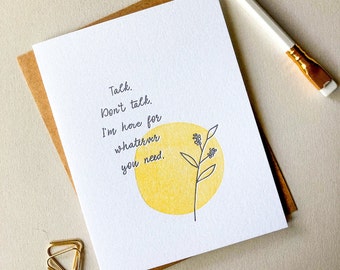 Talk.
Don't talk.
I'm here for
whatever
you need.